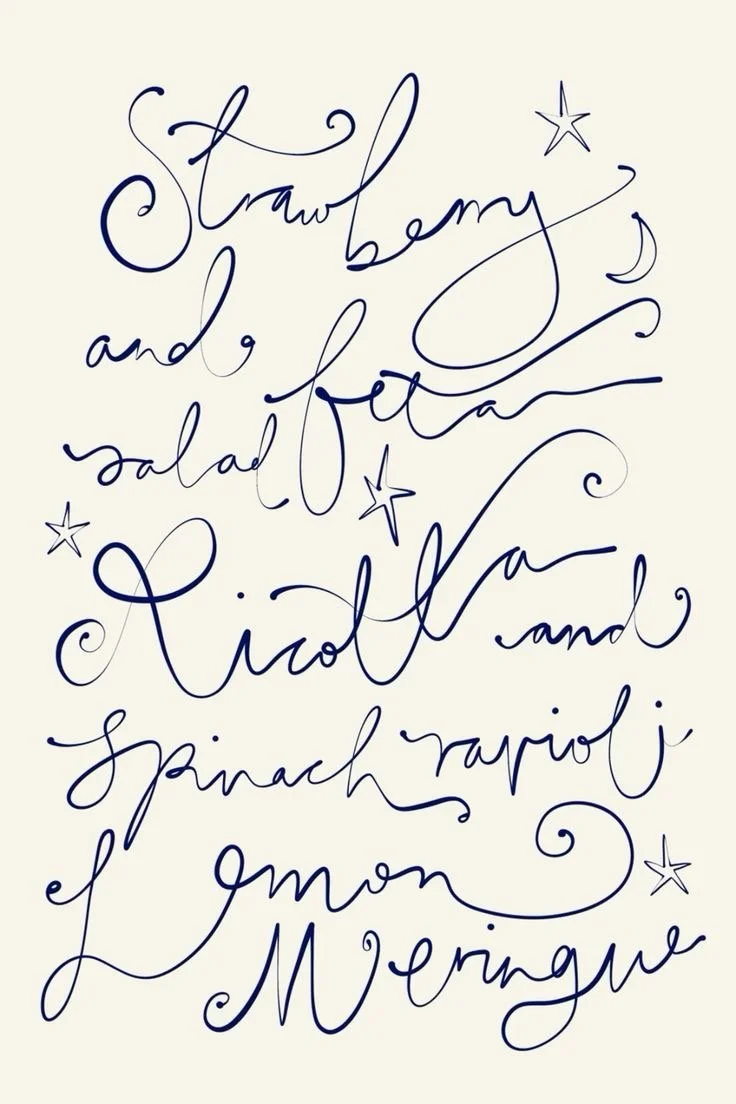 Strawberry
and feta
salad
Ricotta and
Spinach ravioli
Lemon
Meringue